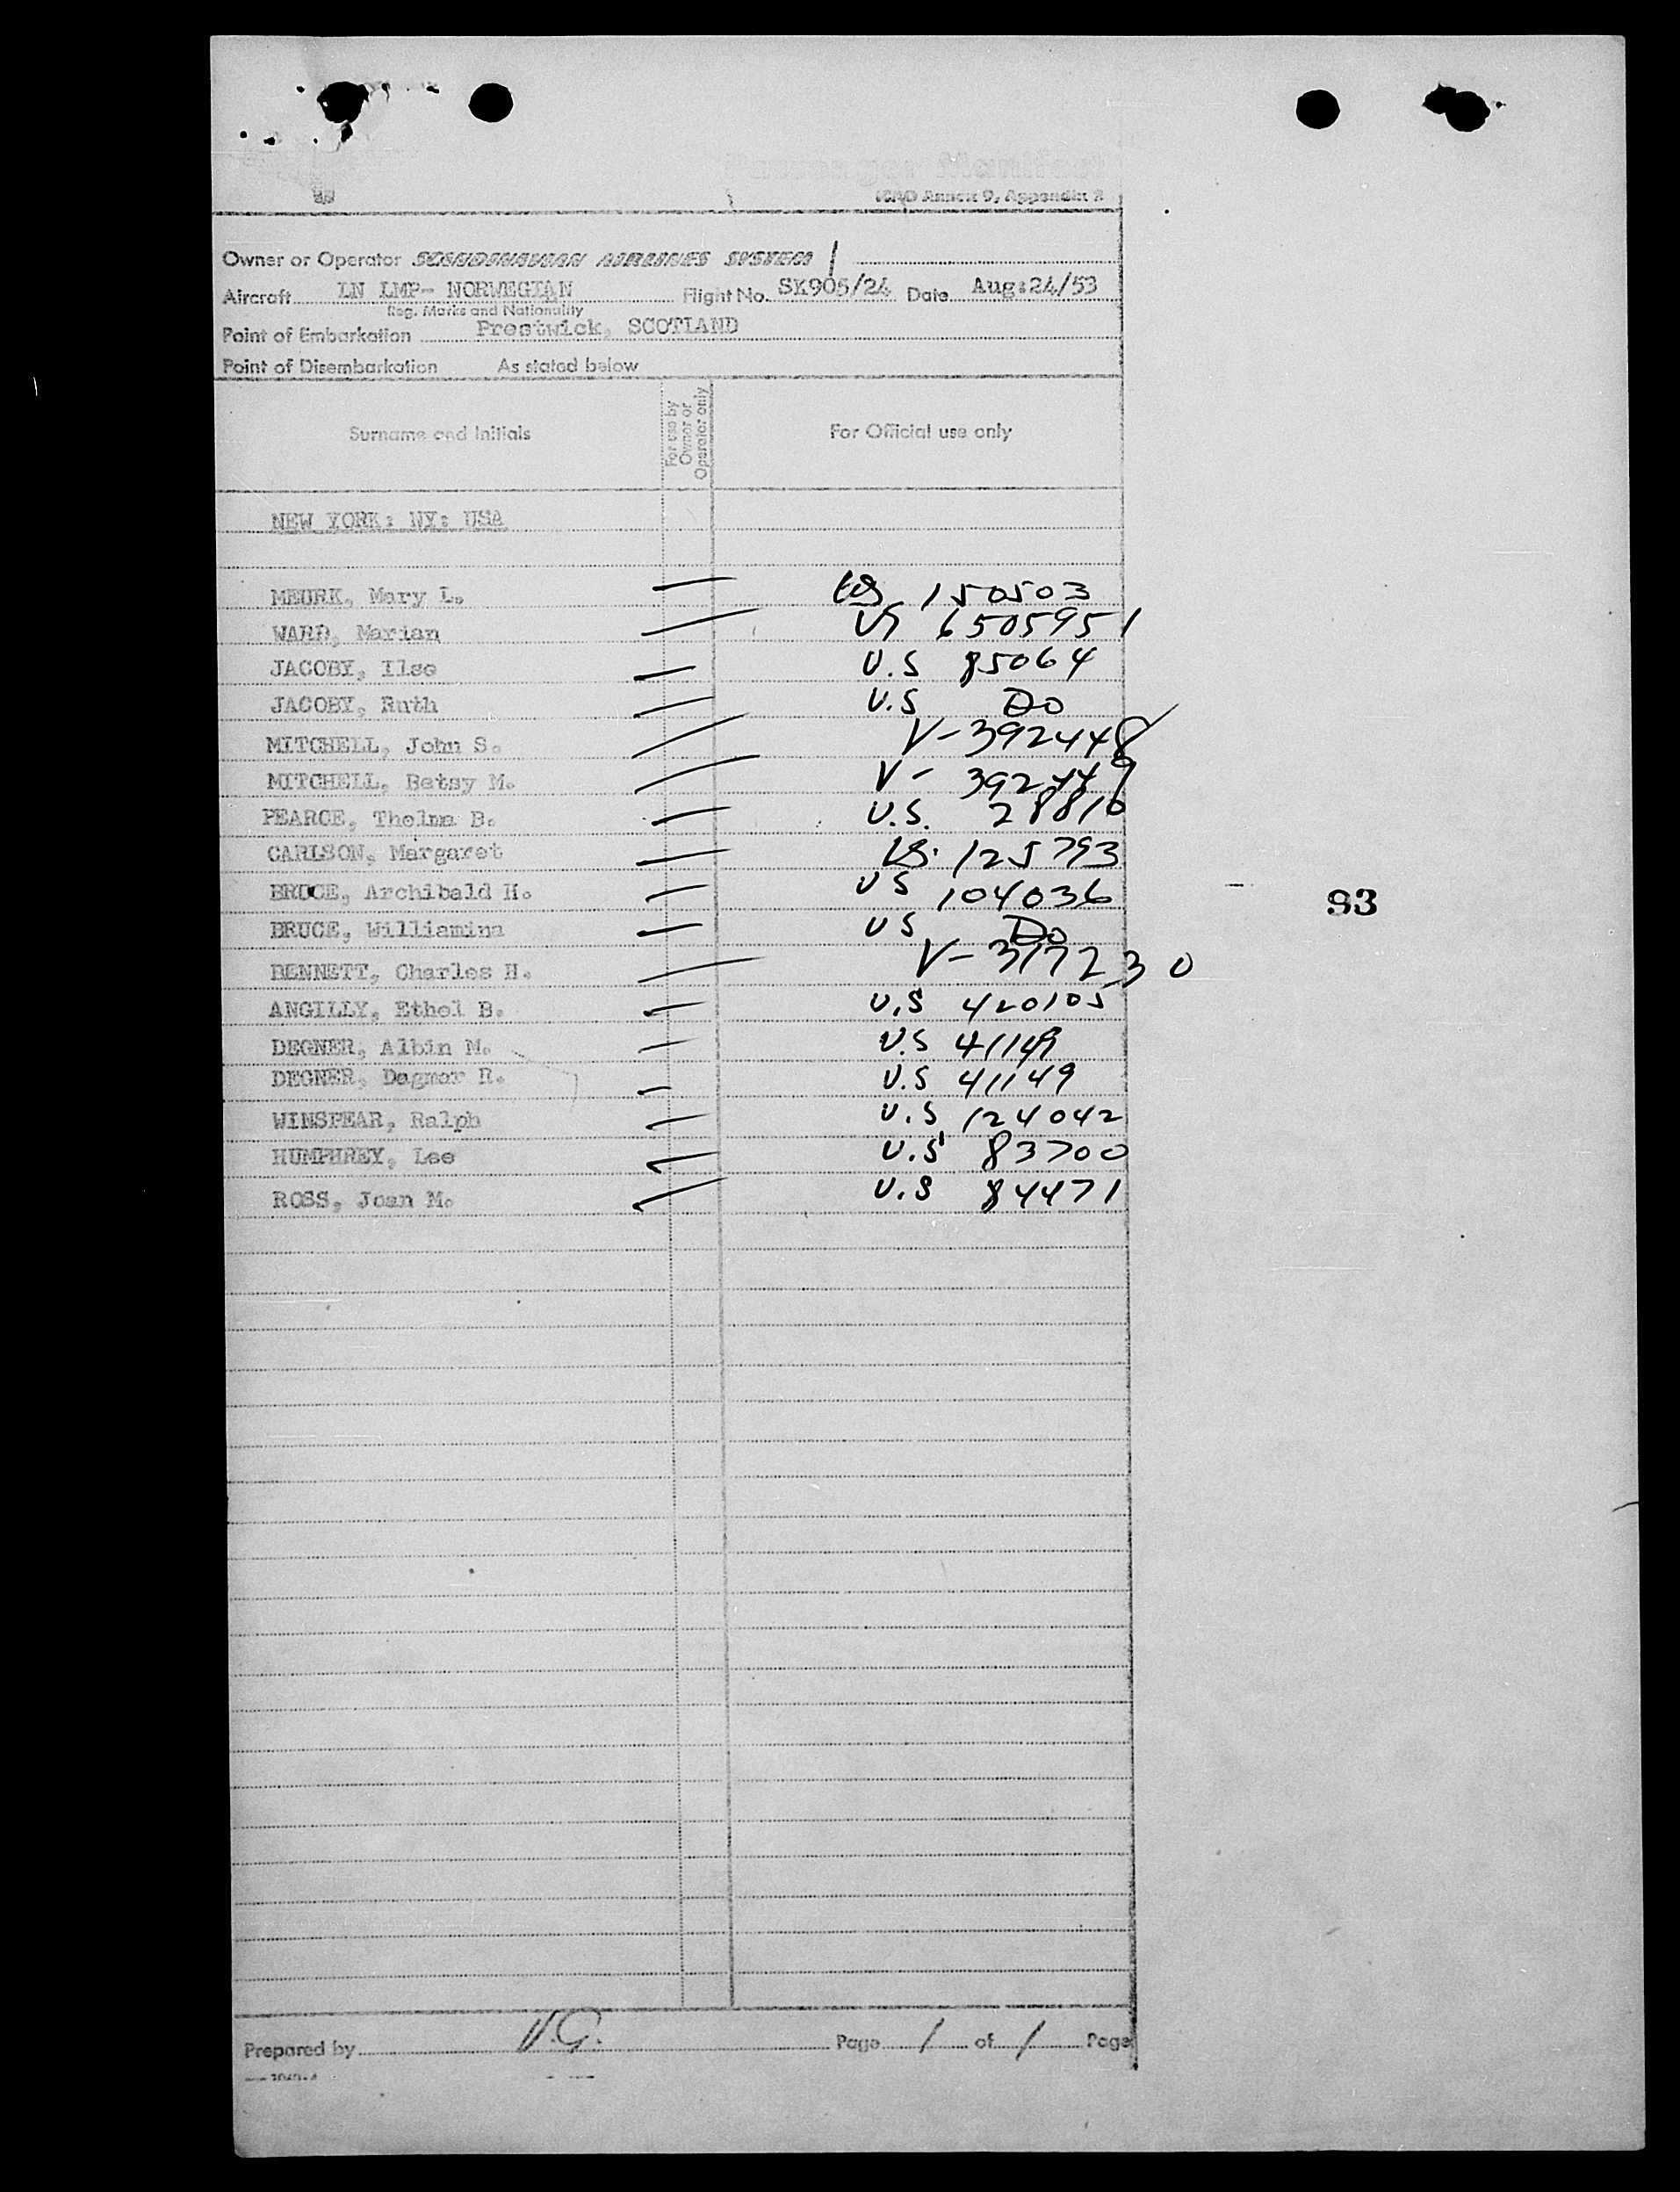 Passenger Manifest
ICAO Annex 9, Appendix 2
Owner or Operator SCANDINAVIAN AIRLINES SYSTEM
Aircraft LN LMP- NORWEGIAN Flight No. SK905/24 Date Aug:24/53
Reg. Marks and Nationality
Point of Embarkation Prestwick, SCOTLAND
Point of Disembarkation As stated below
Surname and Initials For use by Owner or Operator only For Official use only
NEW YORK: NY: USA
MEURK, Mary L. US 150503
WARD, Marian US 6505951
JACOBY, Ilse U.S 85064
JACOBY, Ruth U.S Do
MITCHELL, John S. V-392448
MITCHELL, Betsy M. V- 392449
PEARCE, Thelma B. U.S. 28810
CARLSON, Margaret US. 125793
BRUCE, Archibald H. US 104036
93
BRUCE, Williamina US Do
BENNETT, Charles H. V-3177230
ANGILLY, Ethel B. U.S 420105
DEGNER, Albin M. U.S 41149
DEGNER, Dagmar R. U.S 41149
WINSPEAR, Ralph U.S 124042
HUMPHREY, Lee U.S 83700
ROSS, Joan M. U.S 84471
Prepared by V.G. Page 1 of 1 Page